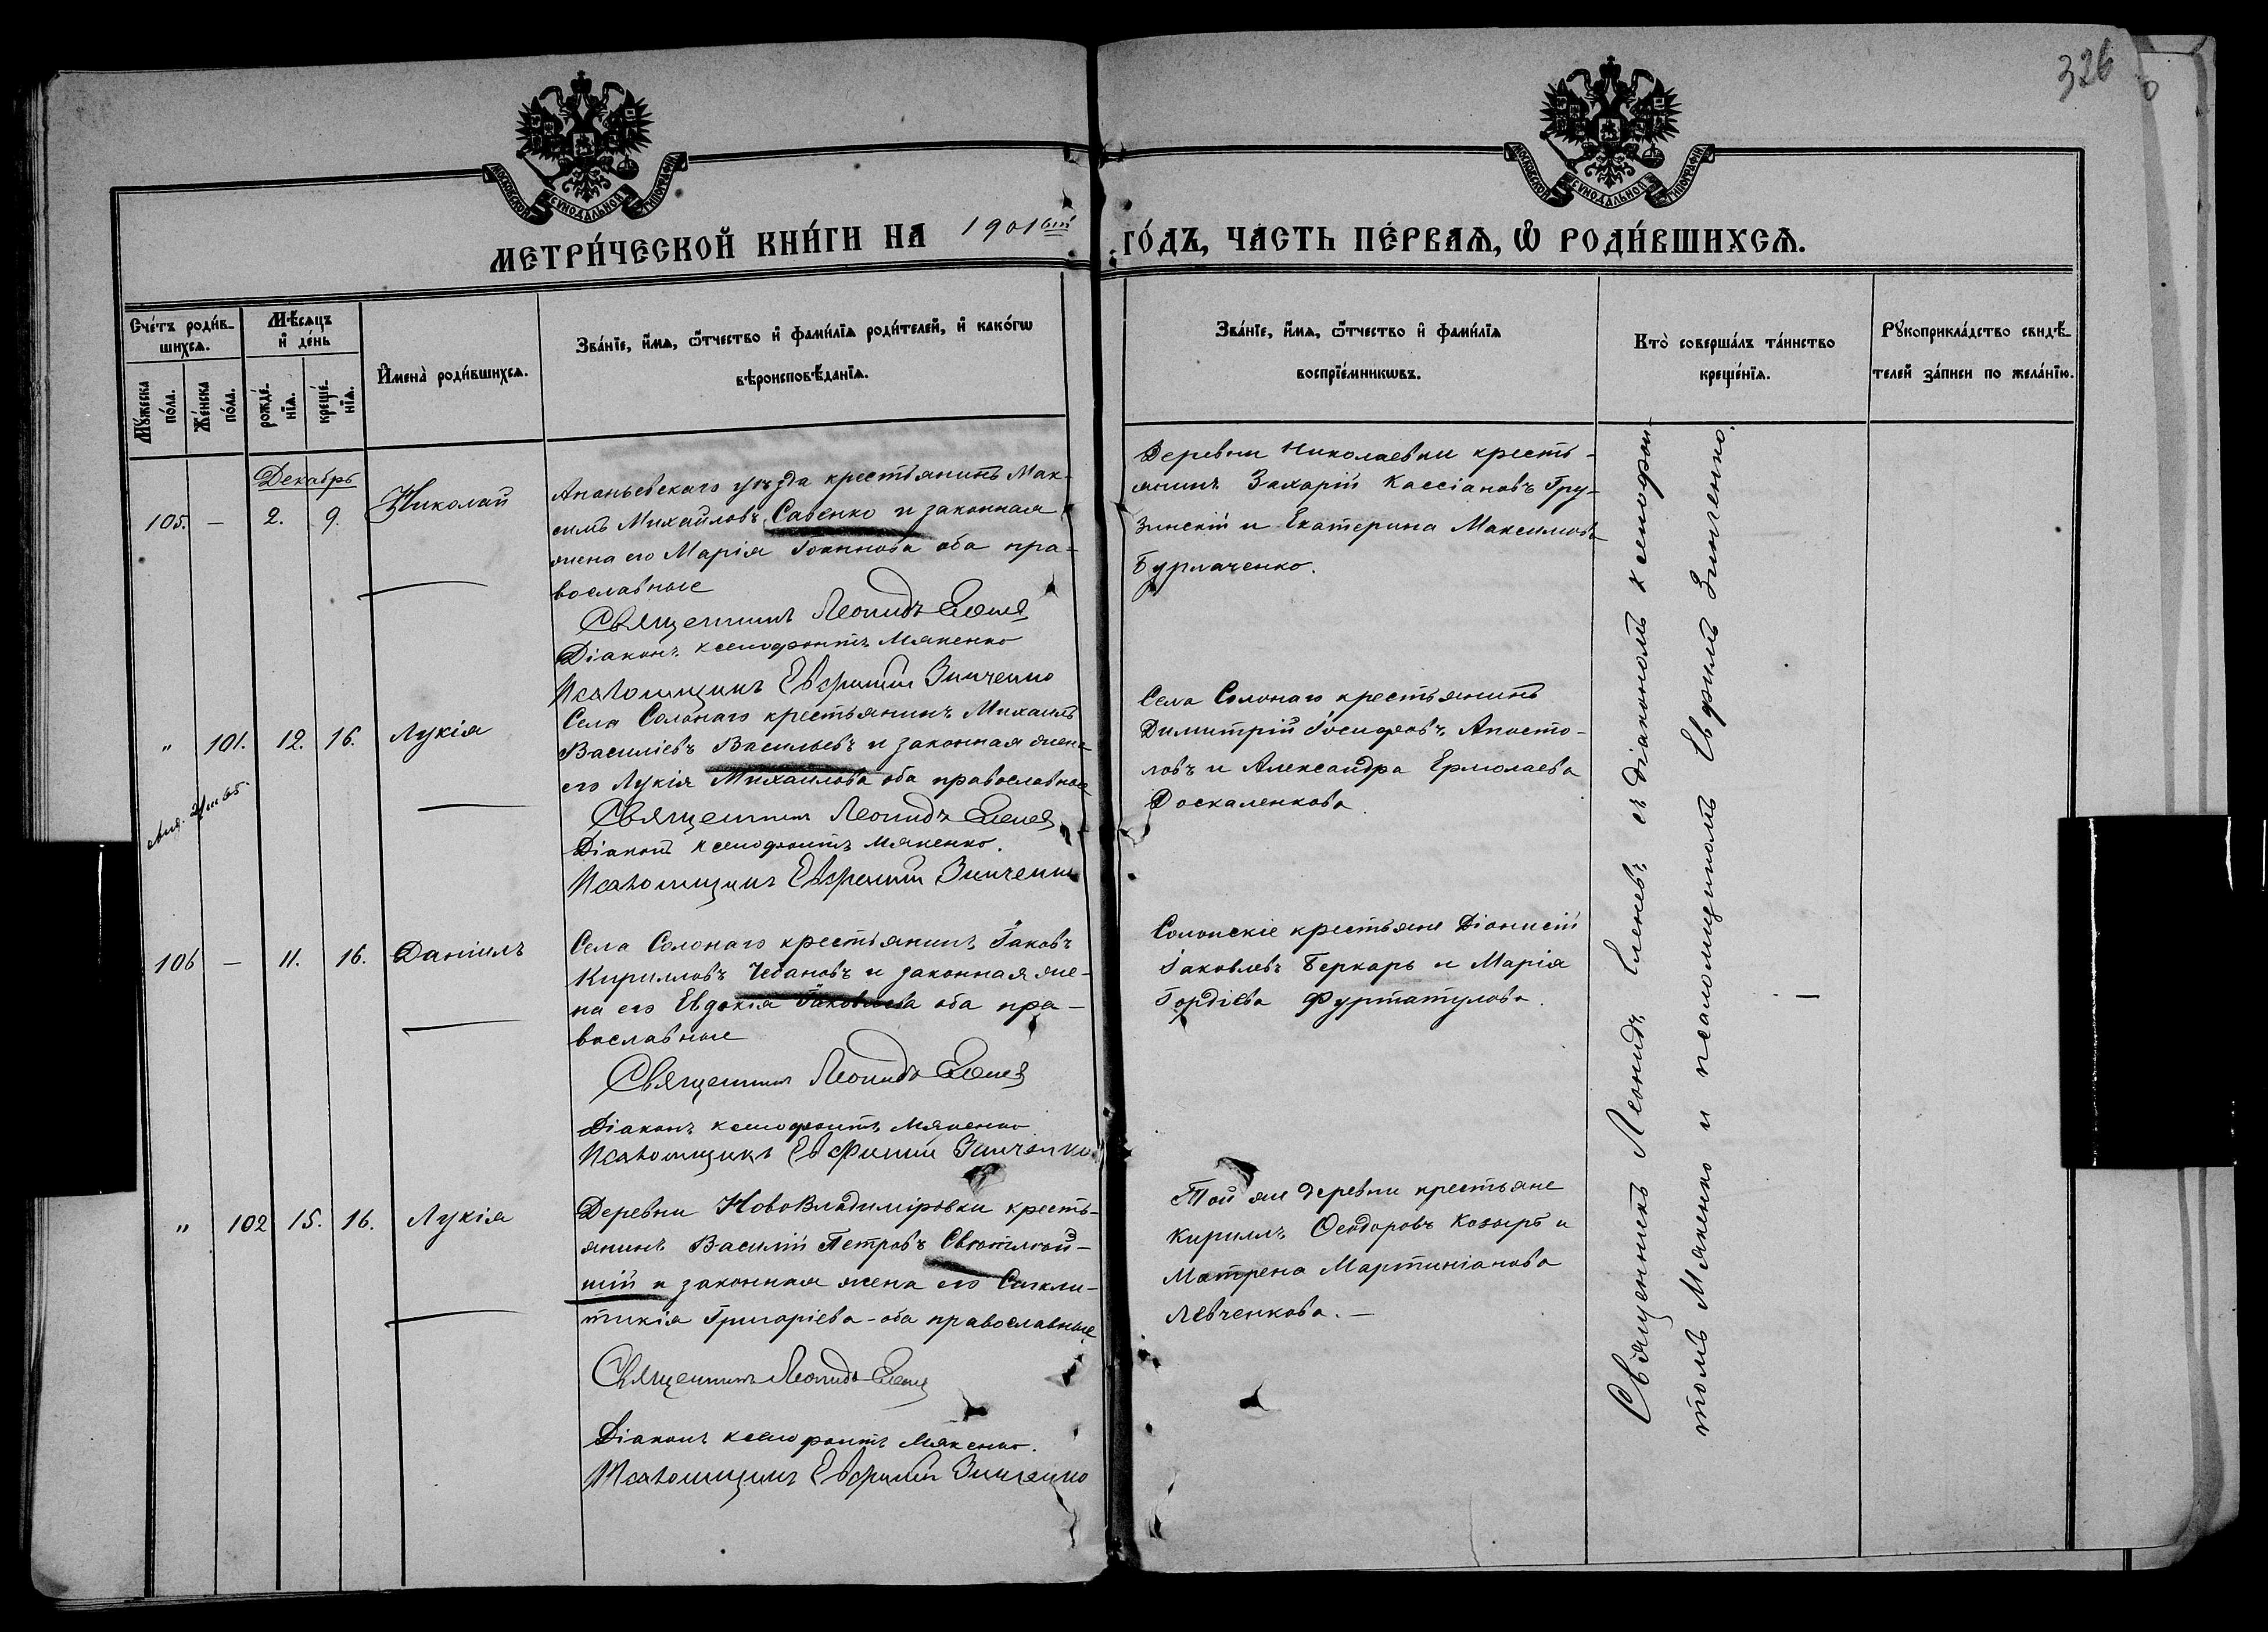 326
МОСКОВСКОЙ СѴНОДАЛЬНОЙ ТИПОГРАФІИ
МОСКОВСКОЙ СѴНОДАЛЬНОЙ ТИПОГРАФІИ
МЕТРИ́ЧЕСКОЙ КНИ́ГИ НА 1901ый ГО́ДЪ, ЧАСТЬ ПЕ́РВАѦ, Ѽ РОДИ́ВШИХСѦ.
Сче́тъ роди́в-
шихсѧ.
Мꙋ́жеска
по́ла.
Же́нска
по́ла.
Мѣ́сѧцъ
и҆ де́нь
рожде́-
нїѧ.
креще́-
нїѧ.
И҆мена̀ роди́вшихсѧ.
Зва́нїе, и҆́мѧ, ѻ҆́тчество и҆ фами́лїѧ роди́телей, и҆ како́гѡ
вѣроисповѣ́данїѧ.
Зва́нїе, и҆́мѧ, ѻ҆́тчество и҆ фами́лїѧ
воспрїе́мникѡвъ.
Кто̀ соверша́лъ та́инство
креще́нїѧ.
Рꙋкоприкла́дство свидѣ́-
телей за́писи по жела́нїю.
Декабрь
105. — 2. 9. Николай
Ананьевскаго уѣзда крестьянинъ Мак-
симъ Михайловъ Савенко и законная
жена его Марія Іоаннова оба пра-
вославные
Священникъ Леонидъ Еленев
Діаконъ Ксенофонтъ Мякенко
Псаломщикъ Евфимій Зинченко
Деревни Николаевки кресть-
янинъ Захарій Кассіановъ Гру-
зинскій и Екатерина Максимова
Бурлаченко.
" 101. 12. 16. Лукія
Села Солонаго крестьянинъ Михаилъ
Василіевъ Васильевъ и законная жена
его Лукія Михаилова оба православные
Священникъ Леонидъ Еленев
Діаконъ Ксенофонтъ Мякенко.
Псаломщикъ Евфимій Зинченко
Села Солонаго крестьянинъ
Димитрій Іосифовъ Апосто-
ловъ и Александра Ермолаева
Доскаленкова
106 — 11. 16. Даніилъ
Села Солонаго крестьянинъ Іаковъ
Кирилловъ Чебановъ и законная же-
на его Евдокія Іаковлева оба пра-
вославные
Священникъ Леонидъ Еленев
Діаконъ Ксенофонтъ Мякенко
Псаломщикъ Евфимій Зинченко
Солонскіе крестьяне Діонисій
Іаковлевъ Беркарь и Марія
Гордіева Фуртатулова.
—
" 102 15. 16. Лукія
Деревни НовоВладиміровки кресть-
янинъ Василій Петровъ
и законная жена его Сикли-
тикія Григоріева - оба православные
Священникъ Леонидъ Еленев
Діаконъ Ксенофонтъ Мякенко.
Псаломщикъ Евфимій Зинченко
Той же деревни крестьяне
Кириллъ Ѳеодоровъ Козырь и
Матрена Мартиніанова
Левченкова. —
Священникъ Леонидъ Еленевъ съ діакономъ Ксенофон-
томъ Мякенко и псаломщикомъ Евфим. Зинченко.